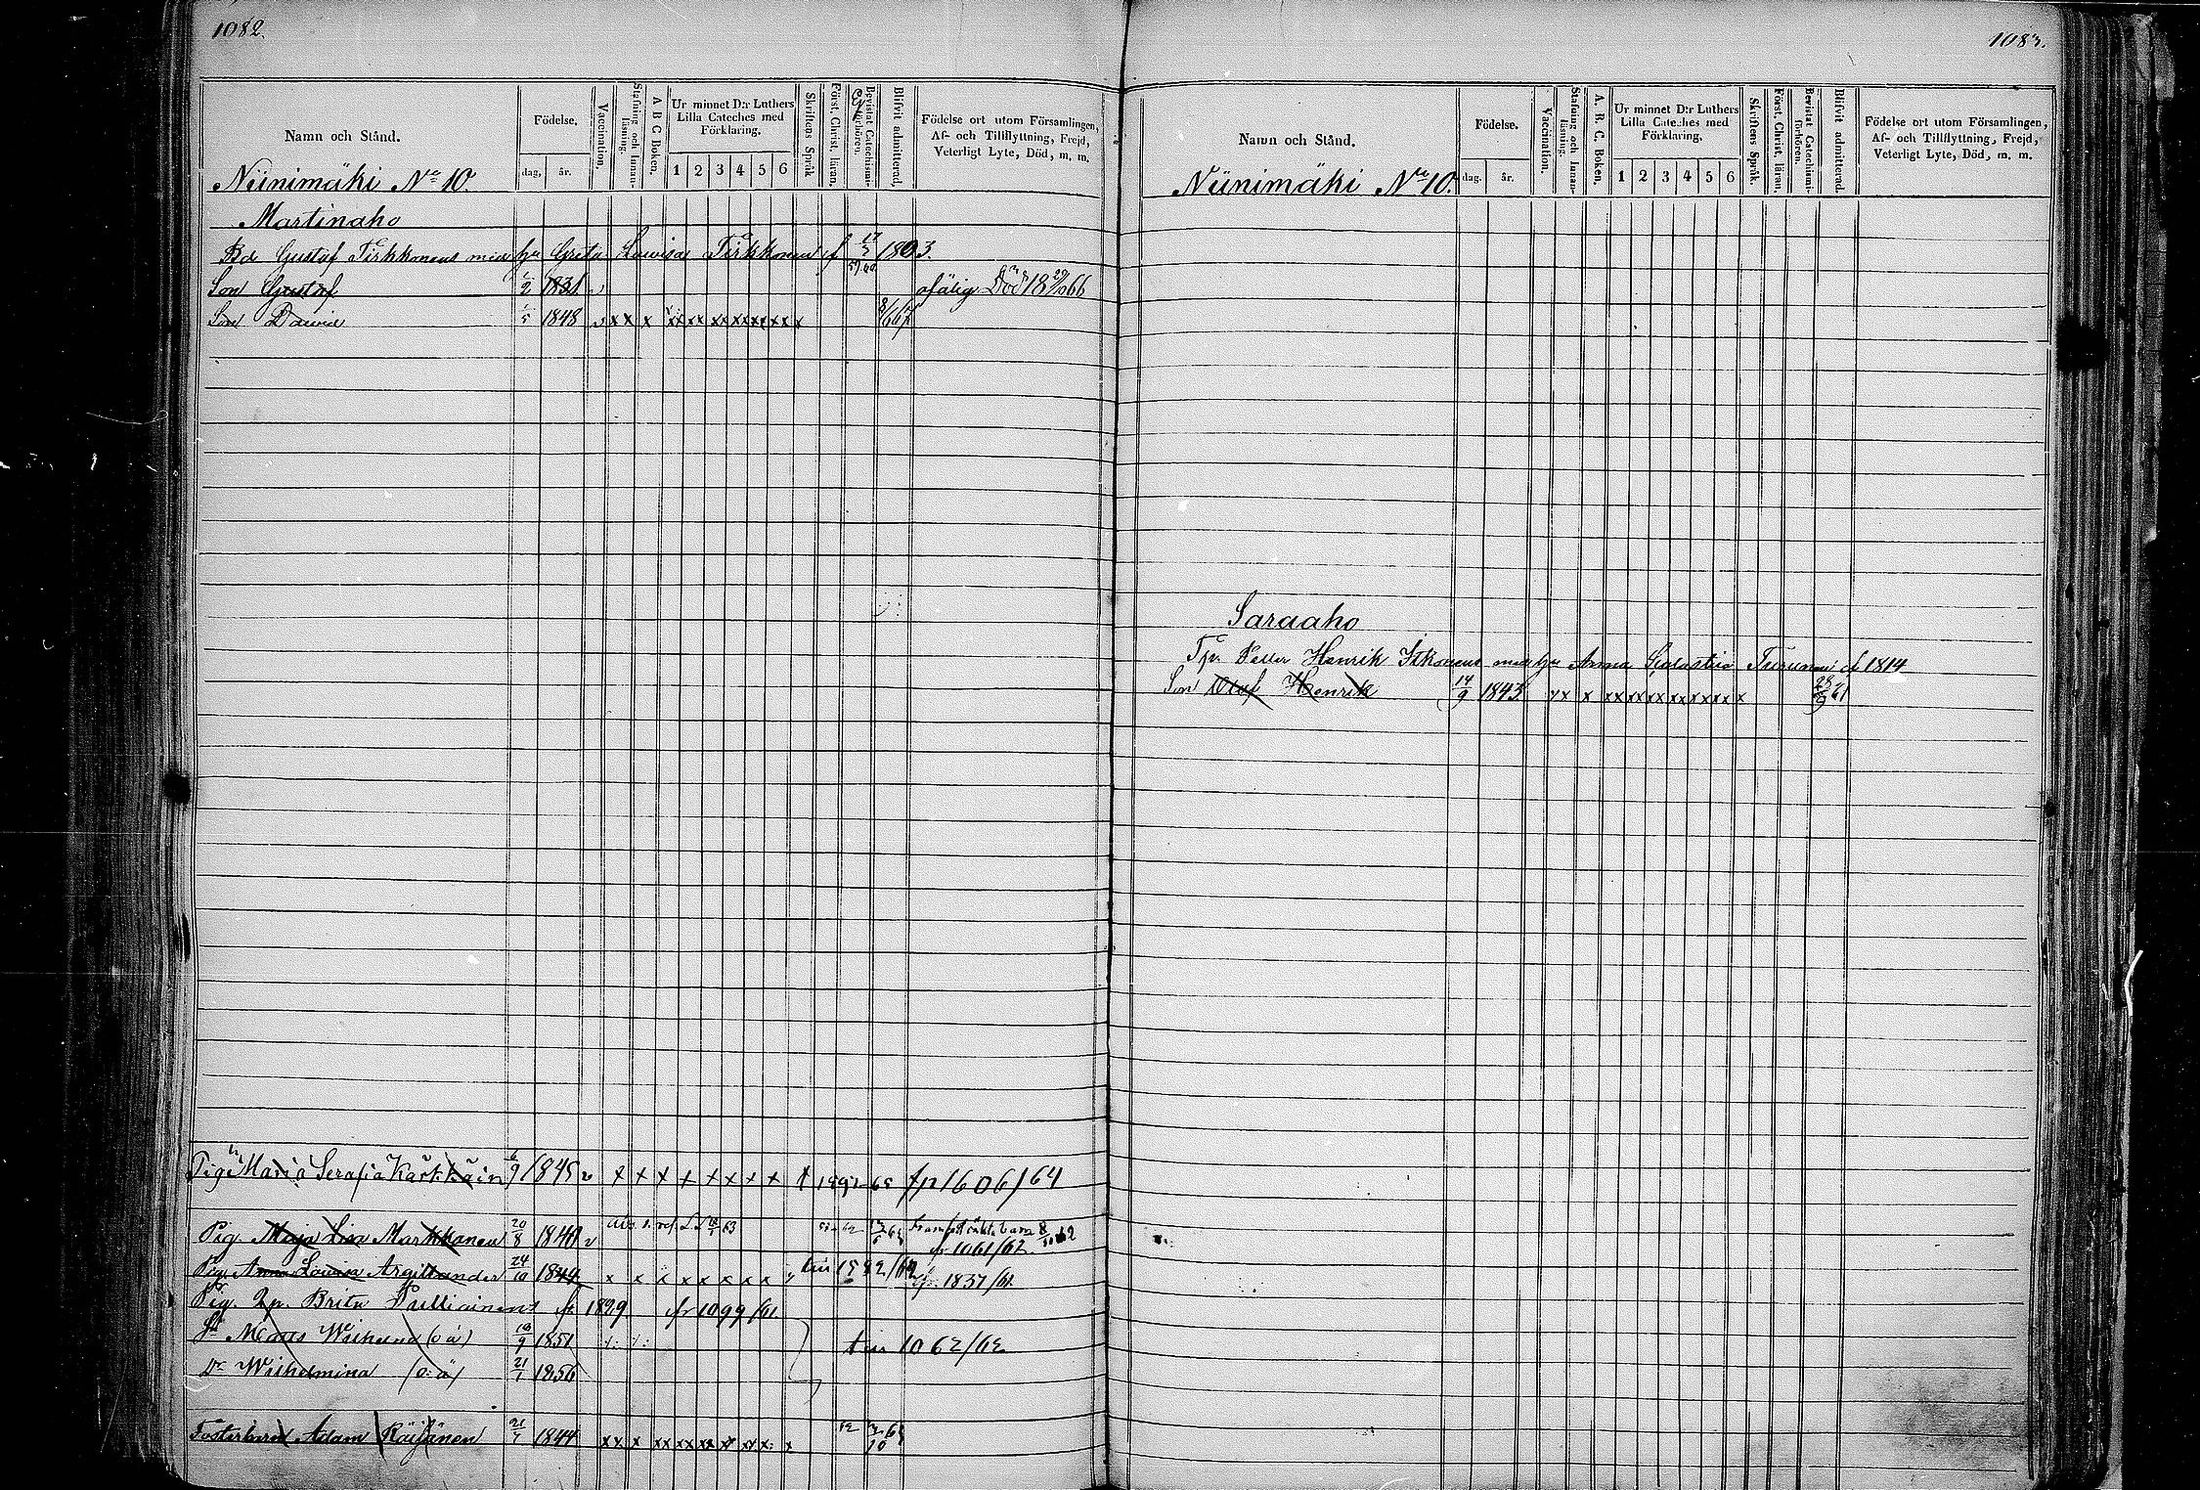 1082.
Namn och Stånd.
Födelse.
dag,
år.
Vaccination.
Stafning och Innan-
läsning.
A B C Boken.
Ur minnet D:r Luthers
Lilla Cateches med
Förklaring.
1 2 3 4 5 6
Skriftens Språk
Först. Christ. läran.
Bevistat Catechismi-
förhören.
Blifvit admitterad,
Födelse ort utom Församlingen,
Af- och Tillflyttning, Frejd,
Veterligt Lyte, Död, m. m.
Niinimäki No 10.
Martinaho
Bd Gustaf Tirkkonens med hu Greta Lowisa Tirkkonen f 17/3 1803.
Son Gustaf 2 1831 v ofälig Död 18 29/10 66
Son David 1/5 1848 v x x x xx xx xx xx xx x x 67
Pig Maria Serafia Karkkain 6/9 1845 v x x x x x x x x 65 fr 1606/64
Pig. Maja Lisa Markkanen 20/8 1840 v 63 fr 1061/62
Pig. Anna Lowisa Argillander 24/10 1849 x x x x x x x x till 1582/64 fr. 1837/61.
Pig. Brita Puttiainens 1829 fr 1099/61.
Sn Mats Wilhelm (o ä) 18/9 1851
till 1062/62
Dr Wilhelmina (o: ä) 21/1 1856
Fosterbarn Adam Räisänen 21/7 1844 xx x xx xx xx x xx x: x
1083.
Namn och Stånd.
Födelse.
dag.
år.
Vaccination.
Stafning och Innan-
läsning.
A. B. C. Boken.
Ur minnet D:r Luthers
Lilla Cateches med
Förklaring.
1 2 3 4 5 6
Skriftens Språk.
Först. Christ. läran.
Bevistat Catechismi-
förhören.
Blifvit admitterad.
Födelse ort utom Församlingen,
Af- och Tillflyttning, Frejd,
Veterligt Lyte, Död, m. m.
Niinimäki No 10.
Saraaho
Tpr Petter Henrik Itkonens med hu Anna Scolastica Turunen f 1814
Son Olof Henrik 14/9 1843 xx x xx xx xx xx x x x x 28/9 61